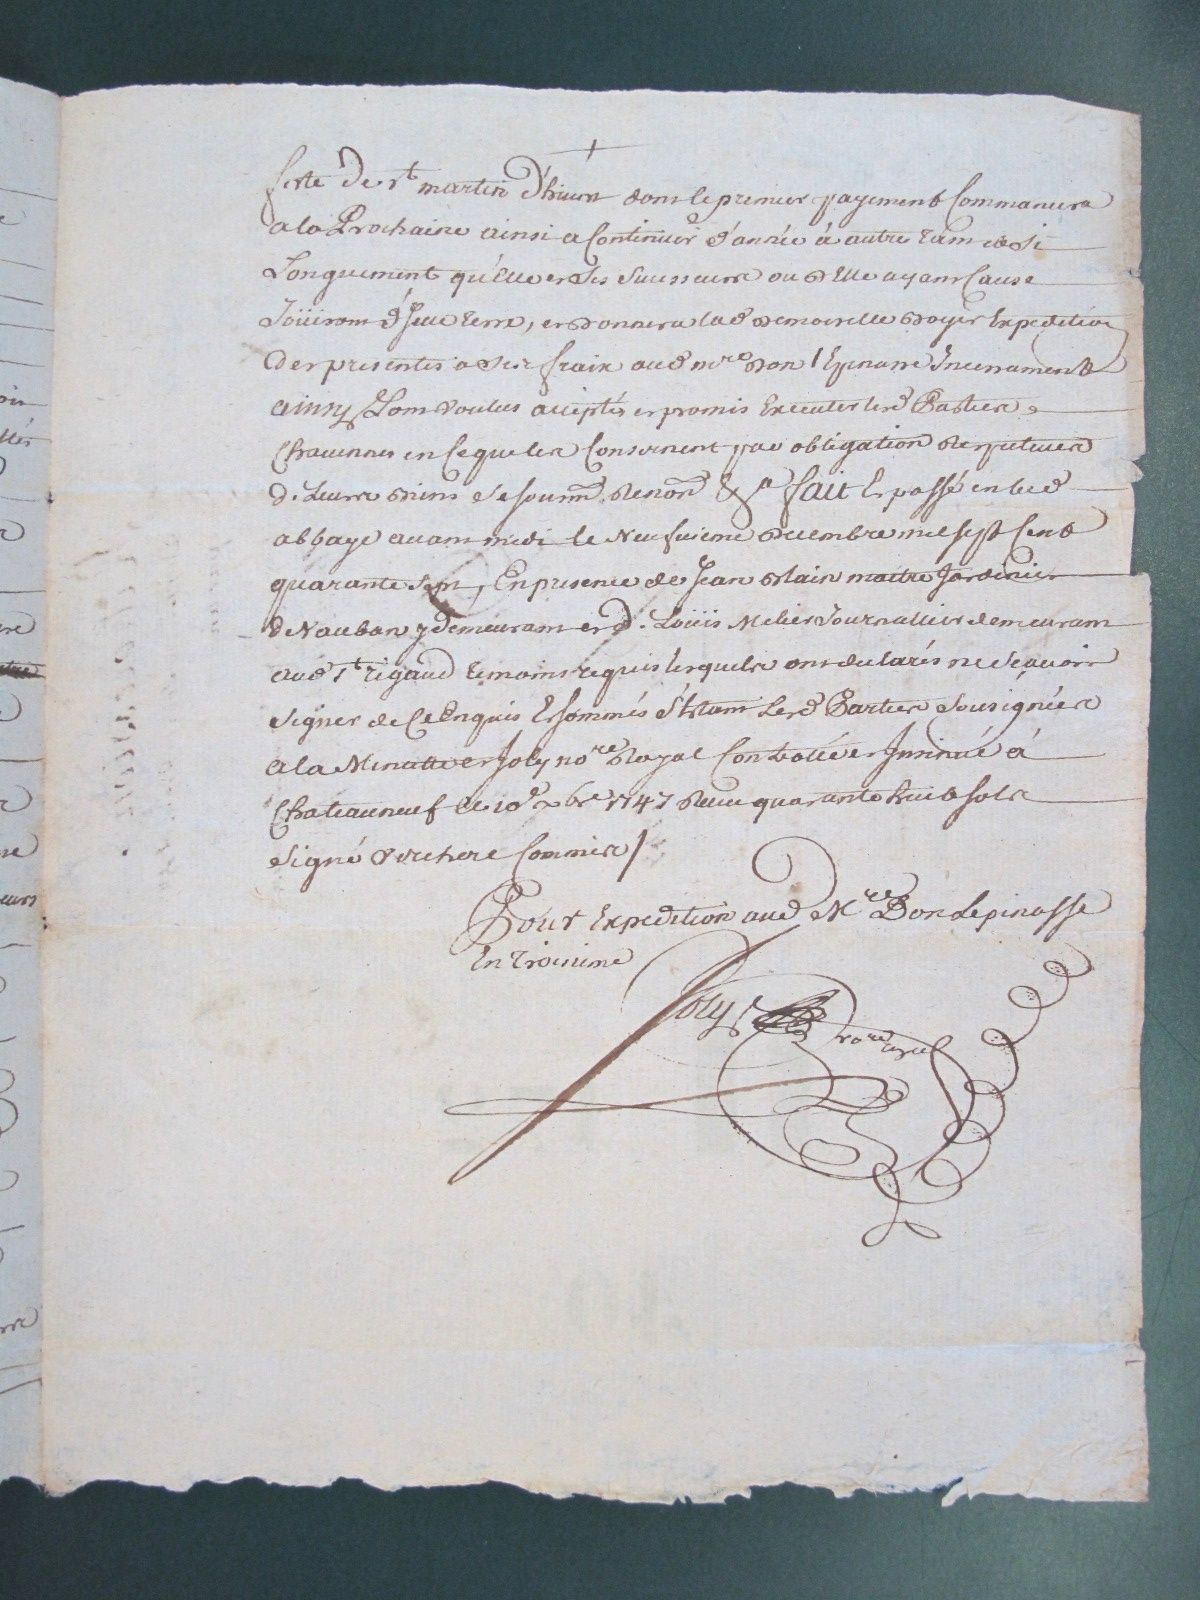 feste de st martin d'hiver dont le premier payement Commancera
a la Prochaine ainsi a Continuer d'année à autre tant et Si
Longuement qu'elle et Ses Successeurs ou d'Elle ayant Cause
Joüiront d'Jcelle terre, et donnera lad demoiselle Expedition
Des presentes a Ses fraix aud mre don l'Epinasse Incenament
ainsy Lont voulus acceptés et promis Executer lesd Parties
Chacunnes en Ce que les Concernent par obligation
De Leurs biens Soumon Renon & a fait Et passé en lad
abbaye avant midi le Neufvieme decembre mil sept Cent
quarante Sept, En presence de Jean Blain maitre Jardinier
de Vauban y demeurant et d. Loüis Melier Journallier demeurant
aud st rigaud temoins requis lesquels ont declarés ne Scavoir
Signer de Ce Enquis Et Sommés S'Etant Lesd Parties Sousignées
a la Minutte et Joly nore Royal Controllé et Jnsinué à
Chateauneuf le 10e xbre 1747 Receu quarante huit Sols
Signé Verchere Commis /
Pour Expedition aud Mre Don Lepinasse
En Troisieme
Joly nore royal